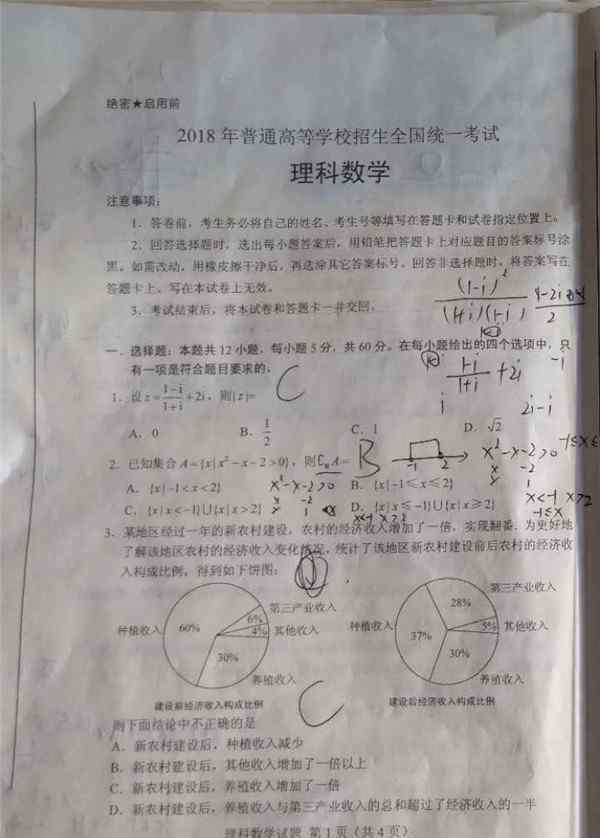 绝密★启用前
2018 年普通高等学校招生全国统一考试
理科数学
注意事项：
1．答卷前，考生务必将自己的姓名、考生号等填写在答题卡和试卷指定位置上。
2．回答选择题时，选出每小题答案后，用铅笔把答题卡上对应题目的答案标号涂
黑。如需改动，用橡皮擦干净后，再选涂其它答案标号。回答非选择题时，将答案写在
答题卡上。写在本试卷上无效。
3．考试结束后，将本试卷和答题卡一并交回。
(1-i)²
(1+i)(1-i)
2
一、选择题：本题共 12 小题，每小题 5 分，共 60 分。在每小题给出的四个选项中，只
有一项是符合题目要求的。
1-i/1+i +2i
-i
i
2i-i
1．设 z=1-i/1+i+2i，则|z|=
C
A．0 B．1/2 C．1 D．√2
2．已知集合 A={x|x²-x-2>0}，则∁RA=
B
-1 2
x²-x-2>0
-1≤x≤
A．{x|-1<x<2} B．{x|-1≤x≤2}
x²-x-2>0
x -2
x 1
C．{x|x<-1}∪{x|x>2} D．{x|x≤-1}∪{x|x≥2}
x -2
x 1
x<-1 x>2
x<-1 x>2
-1≤x
3．某地区经过一年的新农村建设，农村的经济收入增加了一倍，实现翻番．为更好地
了解该地区农村的经济收入变化情况，统计了该地区新农村建设前后农村的经济收
入构成比例，得到如下饼图：
种植收入 60% 6% 第三产业收入
4% 其他收入
30% 养殖收入
建设前经济收入构成比例
28% 第三产业收入
种植收入 37% 5% 其他收入
30% 养殖收入
建设后经济收入构成比例
C
则下面结论中不正确的是
A．新农村建设后，种植收入减少
B．新农村建设后，其他收入增加了一倍以上
C．新农村建设后，养殖收入增加了一倍
D．新农村建设后，养殖收入与第三产业收入的总和超过了经济收入的一半
理科数学试题 第 1 页（共 4 页）